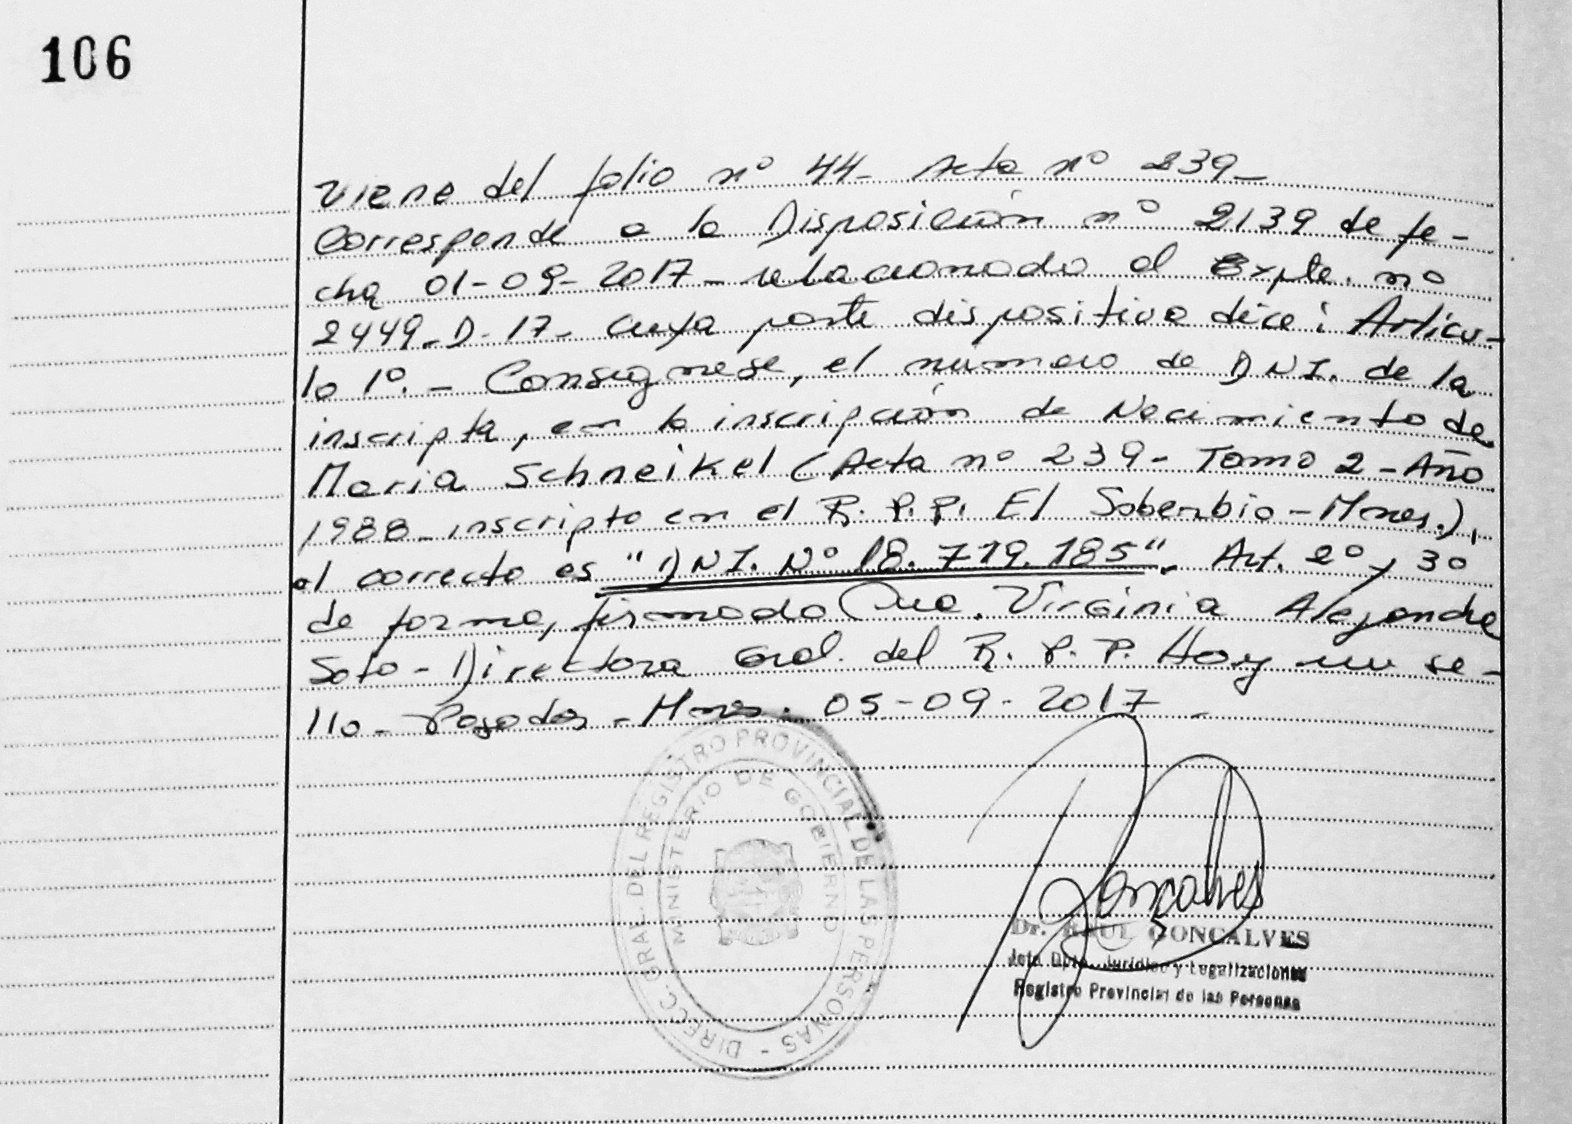 106
Viene del folio nº 44- Acta nº 239-
Corresponde a la Disposición nº 2139 de fe-
cha 01-09-2017- relacionado al Expte. no
2449-D-17- Cuya parte dispositiva dice: Artícu-
lo 1º.- Consignese, el numero de DNI. de la
inscripta, en la inscripción de Nacimiento de
Maria Schneikel (Acta nº 239- Tomo 2-Año
1988- inscripto en el R.P.P. El Soberbio-Mnes.),
el correcto es "DNI. Nº 18.719.185". Art. 2º y 3º
de forma, firmado Dra. Virginia Alejandra
Soto- Directora Gral. del R.P.P. Hay un se-
llo- Posadas- Mnes. 05-09-2017-
DIRECC. GRAL. DEL REGISTRO PROVINCIAL DE LAS PERSONAS -
MINISTERIO DE GOBIERNO
Goncalves
Dr. RAUL GONCALVES
Jefe Dpto. Jurídico y Legalizaciones
Registro Provincial de las Personas